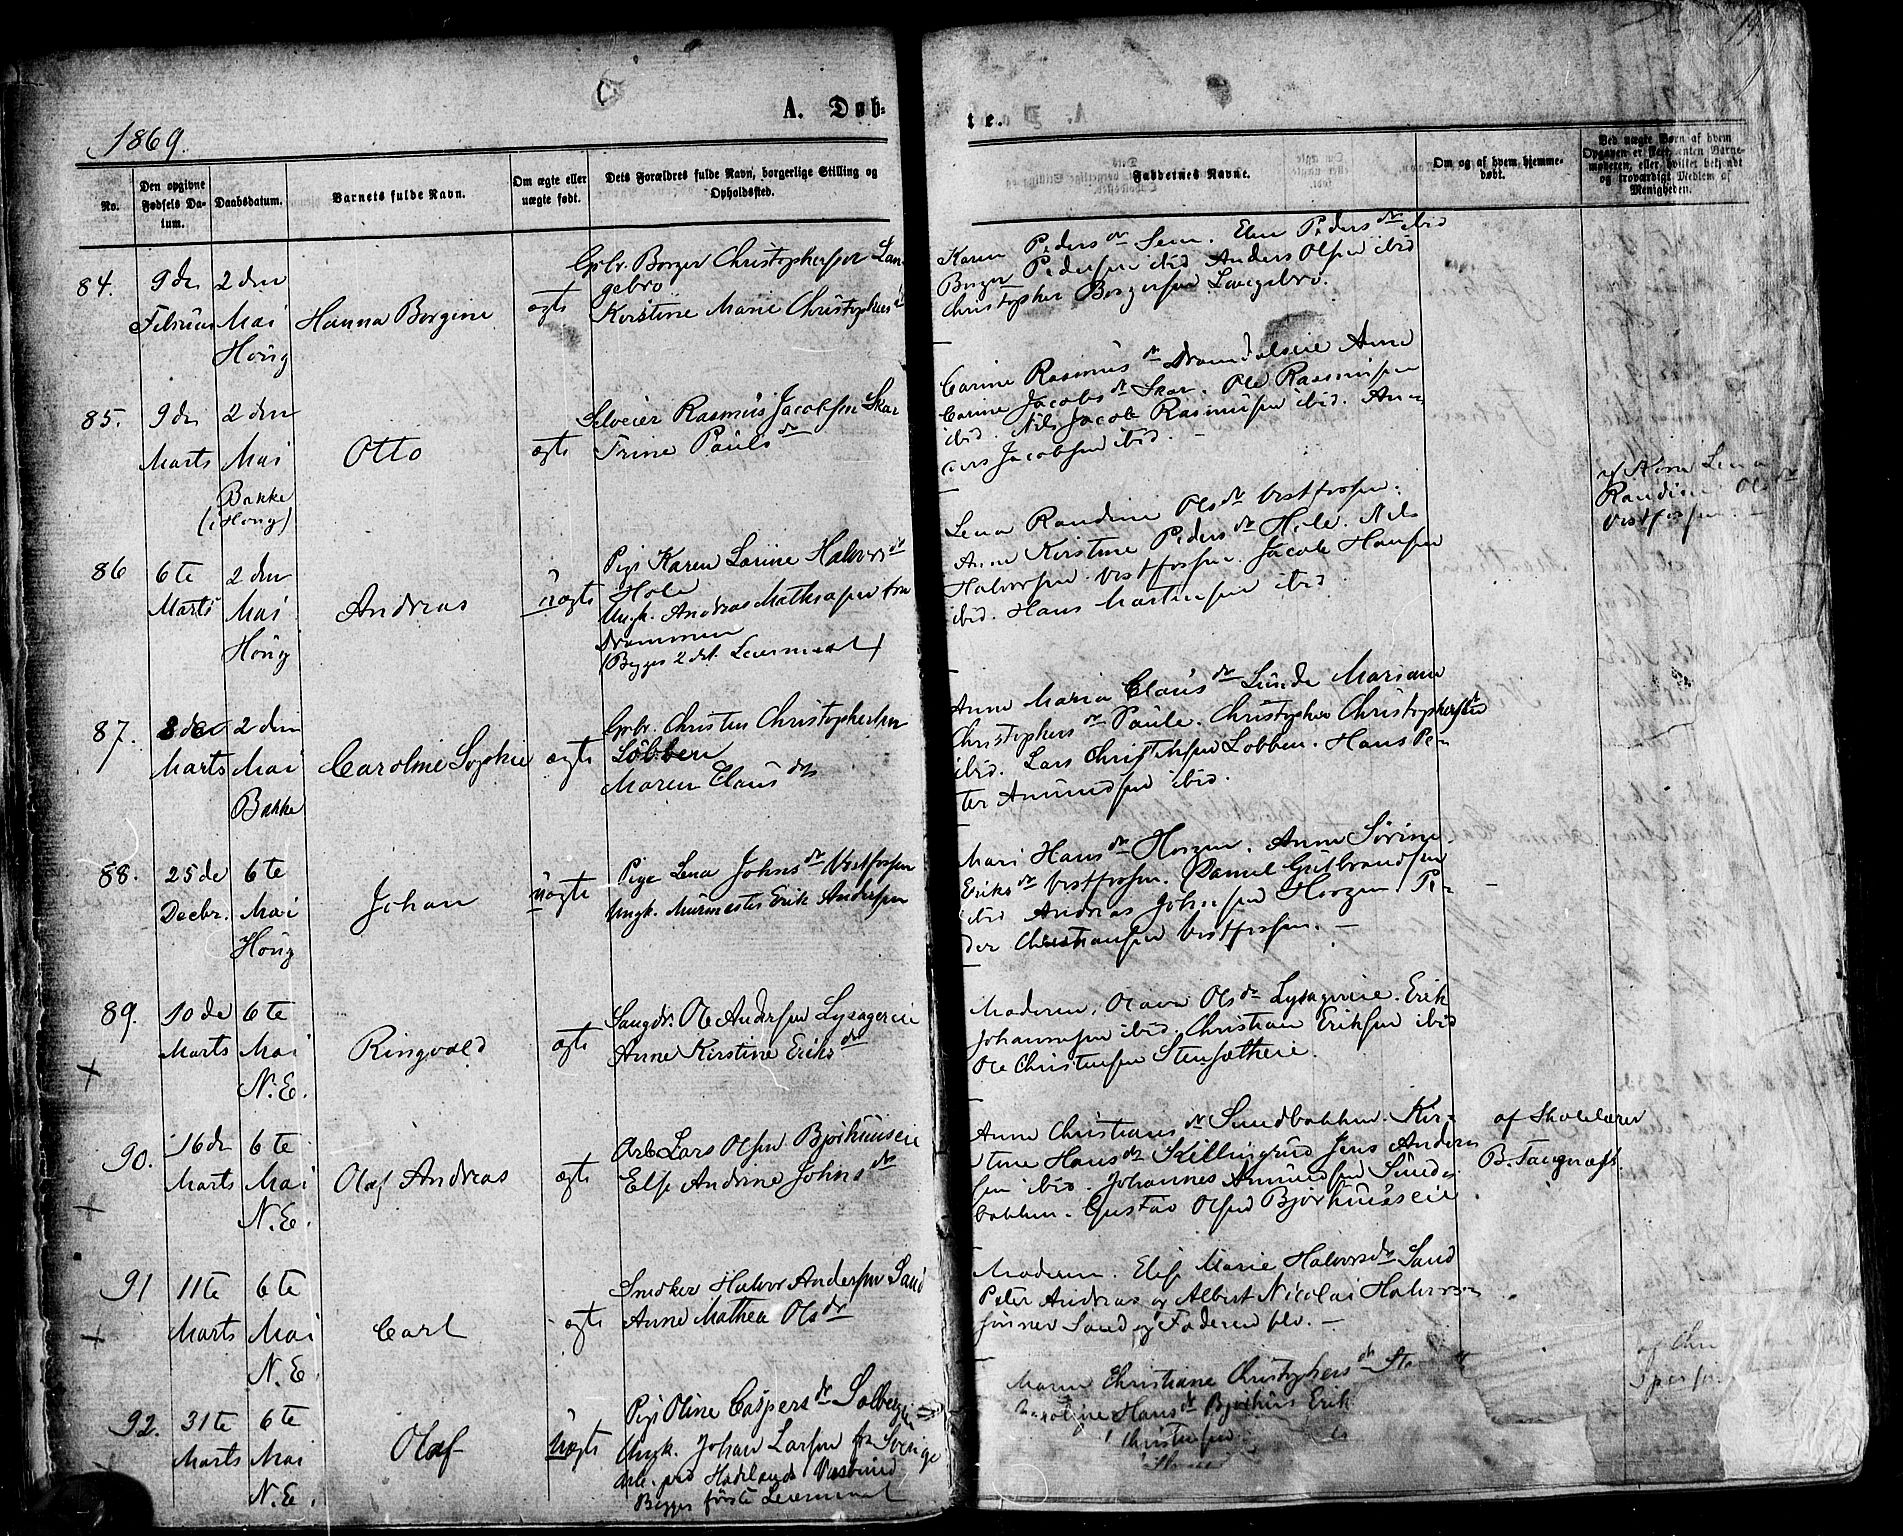 1869.
A. Døb-
te.
No.
Den opgivne Fødsels Da-tum.
Daabsdatum.
Barnets fulde Navn.
Om ægte eller uægte født.
Dets Forældres fulde Navn, borgerlige Stilling og Opholdssted.
Faddernes Navne.
Om og af hvem hjemme-døbt.
Ved uægte Børn af hvem Opgaven er
og troværdigt Medlem af Menigheden.
84.
9de Februar
2den Mai Houg
Hanna Borgine
ægte
Gbr. Borger Christophersen Lan-
gebro
Kirstine Marie Christophers
Karen Pedersdr Sem. Elen Pedersdr ibid
Borger Pedersen ibid Anders Olsen ibid
Christopher Borgersen Langebro.
85.
9de Marts
2den Mai Bakke (i Houg)
Otto
ægte
Selveier Rasmus Jacobsen Skar
Trine Paulsdr
Carine Rasmusdr Anne
Carine Jacobsdr Skar. Ole Rasmusen
ibid. Nils Jacob Rasmusen ibid. An-
ders Jacobsen ibid. -
86
6te Marts
2den Mai Houg
Andreas
uægte
Pige Karen Larine Halvorsdr
Hole
Ungk. Andreas Mathiasen fra
Drammen
(Begges 2det Leiermaal)
Lena Randine Olsdr Vestfossen.
Anne Kirstine Pedersdr Hole. Nils
Halvorsen Vestfossen. Jacob Hansen
ibid. Hans Martinsen ibid.
Lena
Randine Olsdr
Vestfossen. -
87.
8de Marts
2den Mai Bakke
Caroline Sophie
ægte
Gbr. Christen Christophersen
Lobben
Maren Clausdr
Anne Maria Clausdr Lunde Mariane
Christophersdr Paule. Christopher Christophersen
ibid. Lars Christensen Lobben. Hans Pe-
ter Amundsen ibid.
88.
25de Decbr.
6te Mai Houg
Johan
uægte
Pige Lena Johnsdr Vestfossen
Ungk. Murmester Erik Andersen
Mari Hansdr Horgen. Anne Sørine
Eriksdr Vestfossen. Daniel Gulbrandsen
ibid Andreas Johnsen Horgen Pe-
der Christiansen Vestfossen. -
89.
10de Marts
6te Mai N.E.
Ringvald
ægte
Saugdr. Ole Andersen Lysagereie
Anne Kirstine Eriksdr
Moderen, Olava Olsdr Lysagereie. Erik
Johannesen ibid. Christian Eriksen ibid
Ole Christensen Stensætheie.
90.
16de Marts
6te Mai N.E.
Olaf Andreas
ægte
Arb Lars Olsen Bjørhuuseie
Else Andrine Johnsdr
Anne Christiansdr Sundbakken. Kir-
stine Hansdr Skillingrud Jens Anders
sen ibid. Johannes Amundsen Sund-
bakken. Gustav Olsen Bjørhuuseie.
af Skolelærer
B. Taugnæs.
91
11te Marts
6te Mai N.E.
Carl
ægte
Snedker Halvor Andersen Sand
Anne Mathea Olsdr
Moderen. Elise Marie Halvorsdr Sand
Peter Andreas og Albert Nicolai Halvors-
sønner Sand og Faderen selv. -
92.
31te Marts
6te Mai N.E.
Olaf
Uægte
Pige Oline Caspersdr Solberg
Ungk. Johan Larsen fra Sverige
Arb. ved Hadelands
Begges første Leiermaal
Maren Christiane Christophersdr
Caroline Hansdr Bjørhuus Erik
Christensen